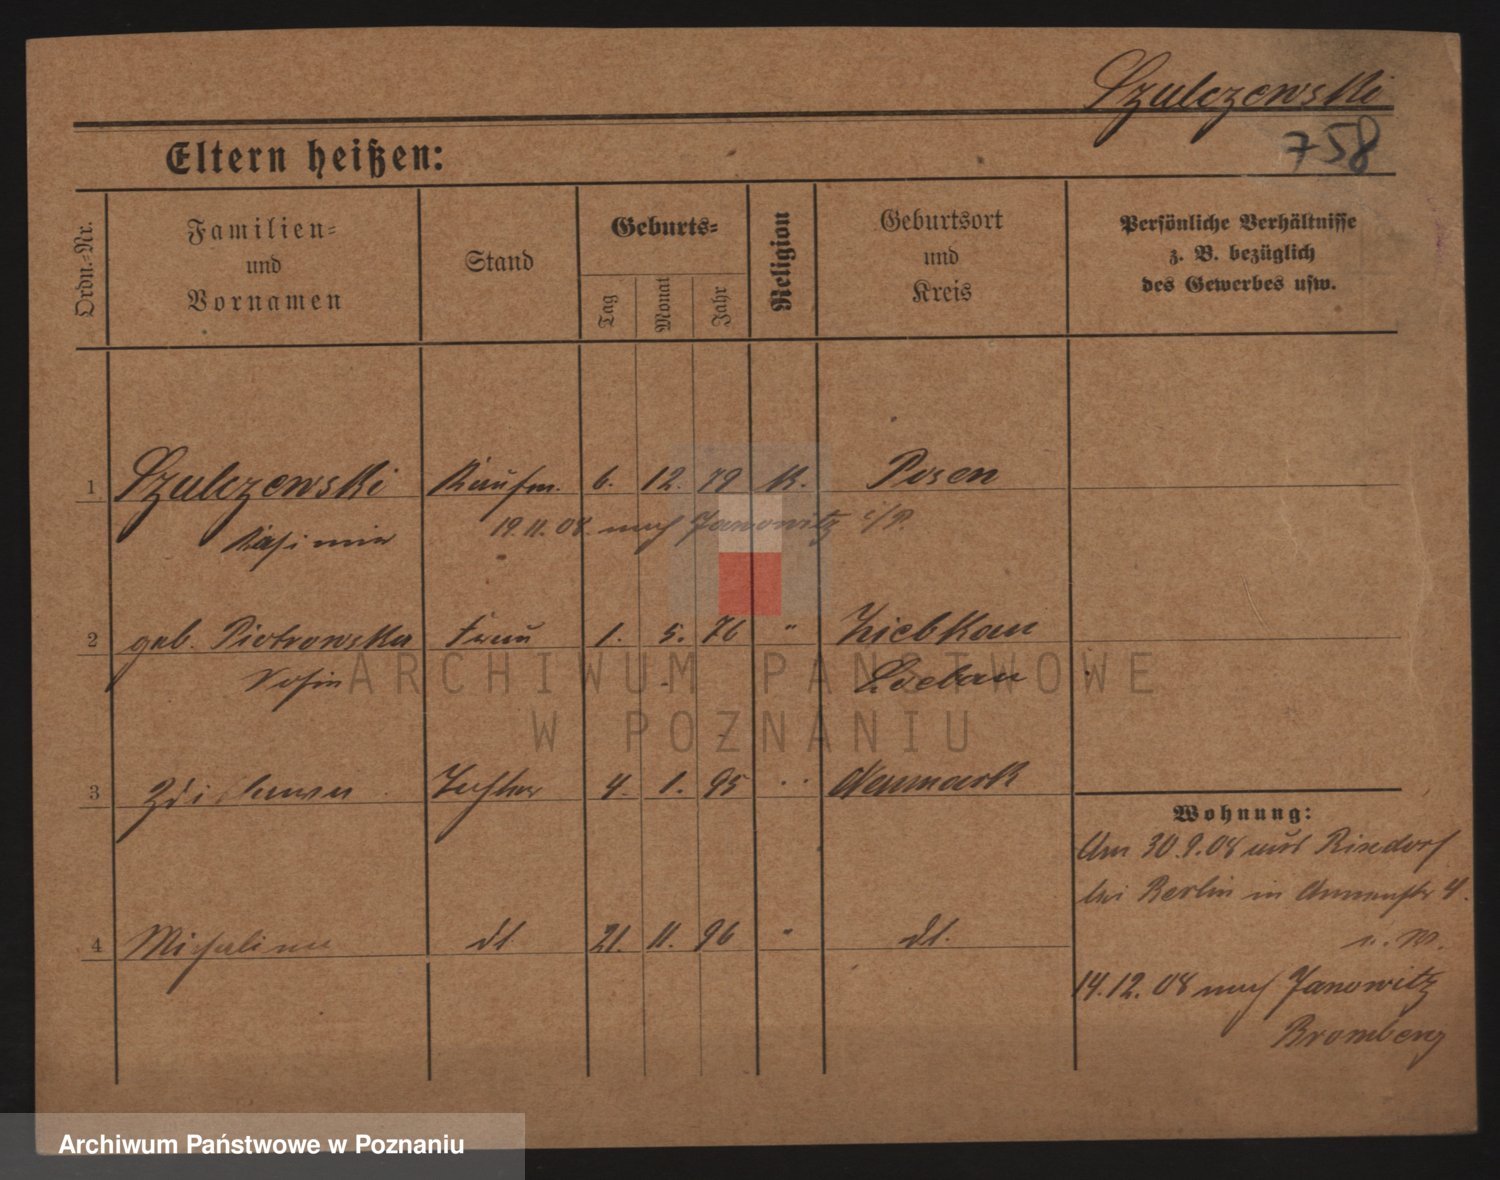 Szulczewski
758
Eltern heißen:
Ordn.-Nr.
Familien-
und
Vornamen
Stand
Geburts-
Tag
Monat
Jahr
Religion
Geburtsort
und
Kreis
Persönliche Verhältnisse
z. B. bezüglich
des Gewerbes usw.
1 Szulczewski Kaufm. 6. 12. 79 K. Posen
Kasimir 19.11.08. nach Janowitz i/P.
2 geb. Piotrowska Frau 1. 5. 76 " 
Rosin Loebau
3 Tochter 4. 1. 95 " Neumark
Wohnung:
Am 30.9.08 aus Rixdorf
bei Berlin in 4.
4 Michalina dt. 21. 11. 96 " dt.
14.12.08 nach Janowitz
Bromberg
ARCHIWUM PAŃSTWOWE
W POZNANIU
Archiwum Państwowe w Poznaniu